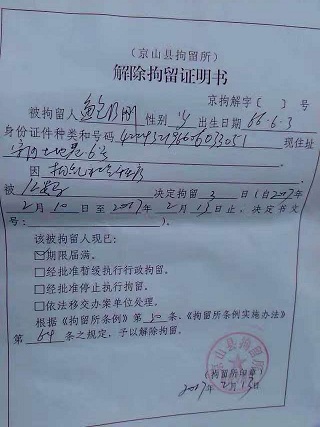 （京山县拘留所）
解除拘留证明书
京拘解字〔 〕 号
被拘留人 性别 出生日期 66.6.3
身份证件种类和号码 现住址
因
被 决定拘留 3 日（自2017年
2月10日至2017年2月13日止，决定书文
号： ）。
该被拘留人现已：
☑期限届满。
□经批准暂缓执行行政拘留。
□经批准停止执行拘留。
□依法移交办案单位处理。
根据《拘留所条例》第30条、《拘留所条例实施办法》
第 64 条之规定，予以解除拘留。
京山县拘留所
（拘留所印章）
2017年2月13日